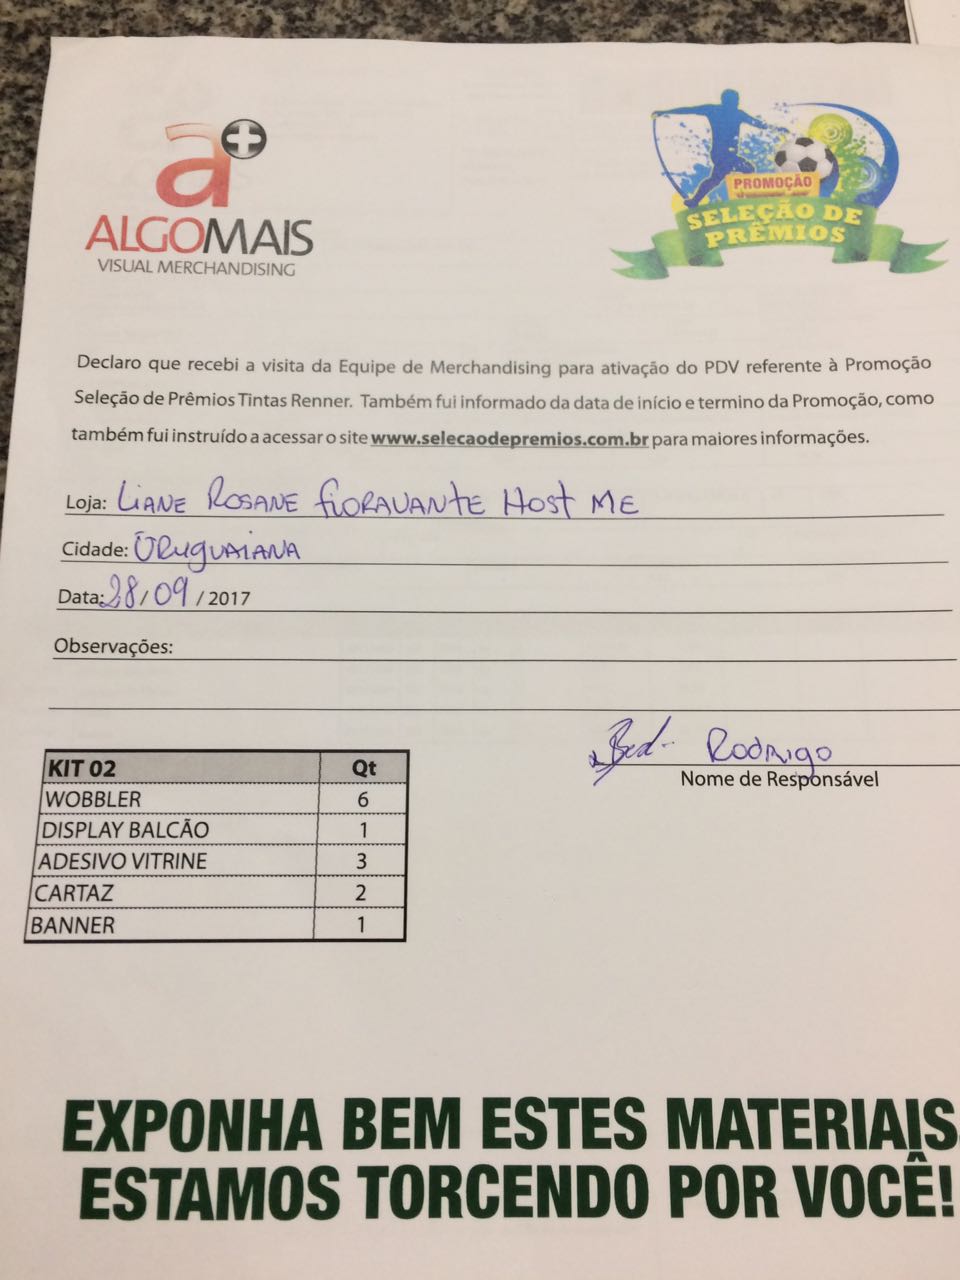 a+
ALGOMAIS
VISUAL MERCHANDISING
PROMOÇÃO
SELEÇÃO DE
PRÊMIOS
Declaro que recebi a visita da Equipe de Merchandising para ativação do PDV referente à Promoção
Seleção de Prêmios Tintas Renner. Também fui informado da data de início e termino da Promoção, como
também fui instruído a acessar o site www.selecaodepremios.com.br para maiores informações.
Loja: LIANE ROSANE FIORAVANTE HOST ME
Cidade: URUGUAIANA
Data: 28/09/2017
Observações:
Rodrigo
Nome de Responsável
KIT 02 Qt
WOBBLER 6
DISPLAY BALCÃO 1
ADESIVO VITRINE 3
CARTAZ 2
BANNER 1
EXPONHA BEM ESTES MATERIAIS
ESTAMOS TORCENDO POR VOCÊ!